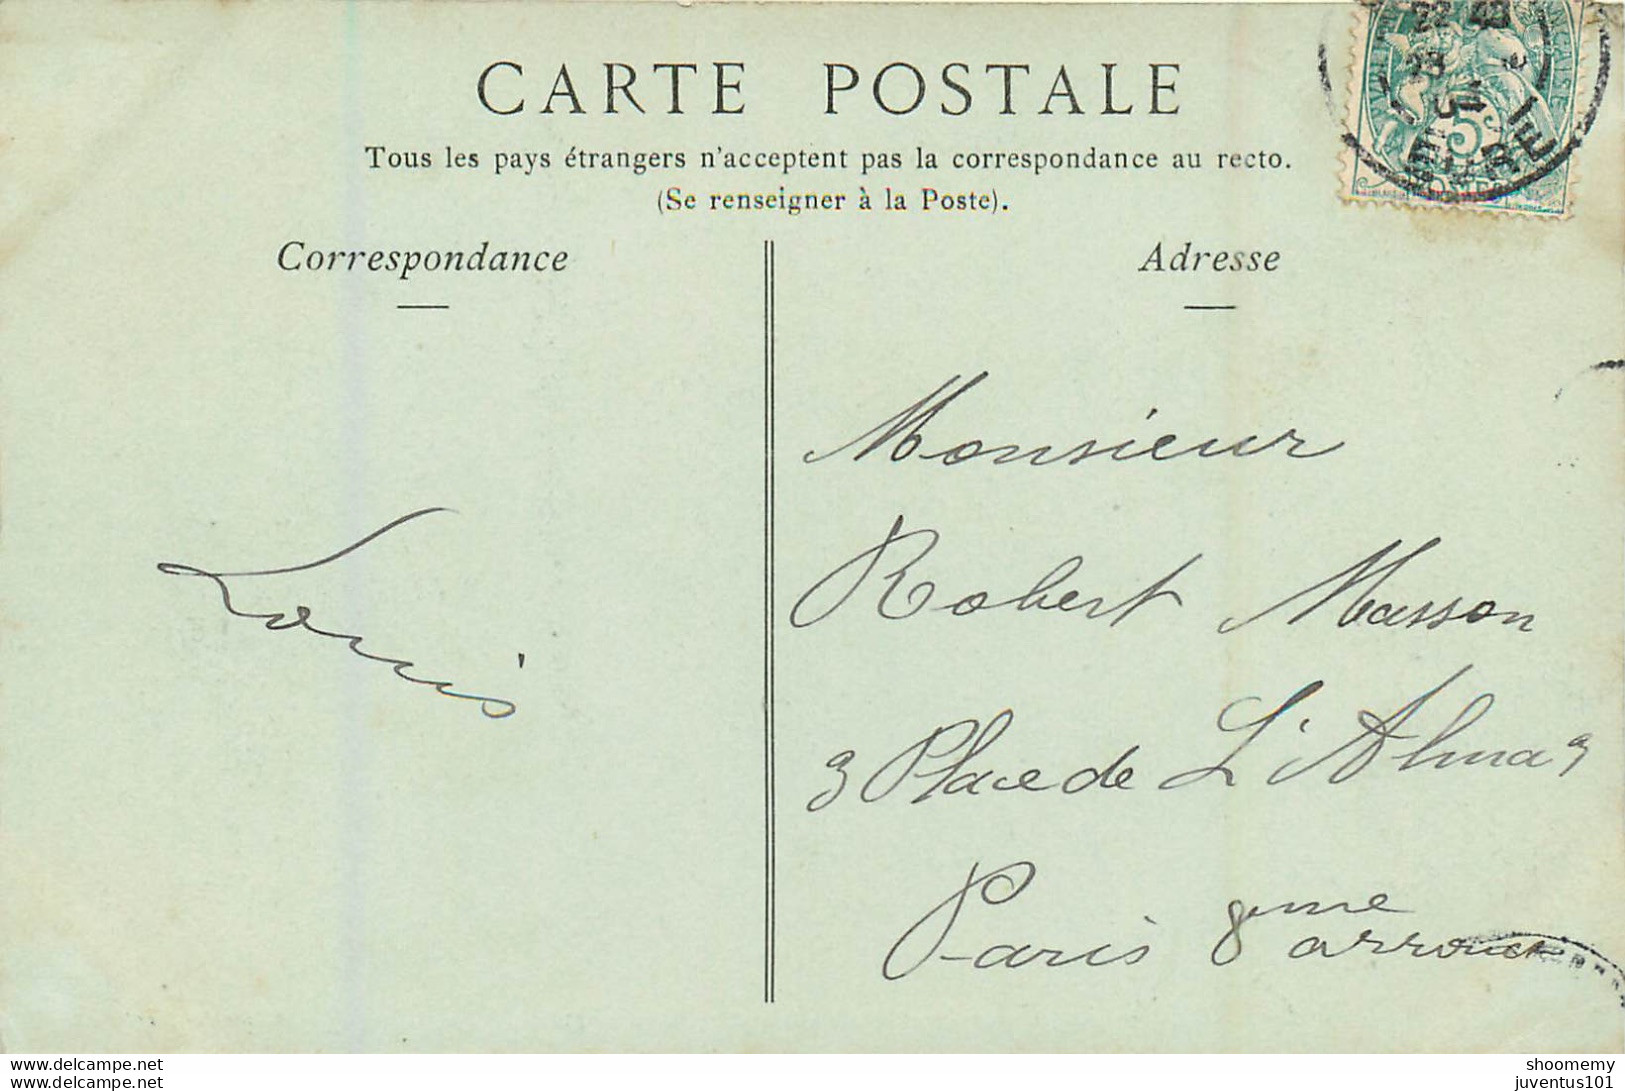 CARTE POSTALE
Tous les pays étrangers n'acceptent pas la correspondance au recto.
(Se renseigner à la Poste).
Correspondance
Adresse
Louis
Monsieur
Robert Masson
3 Place de L'Alma 3
Paris 8eme arrond
5
Delcampe.net
shoomemy
juventus101